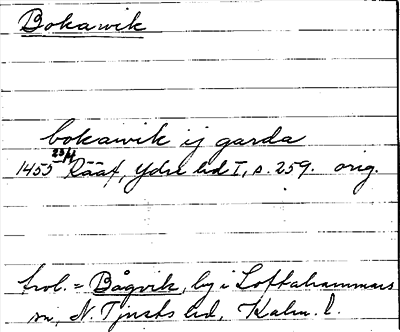 Bokawik
bokawik ij garda
1455 23/4 Rääf, Ydre hd I, s. 259. orig.
trol. = Bågvik, by i Loftahammars
sn, N. Tjusts hd, Kalm. l.